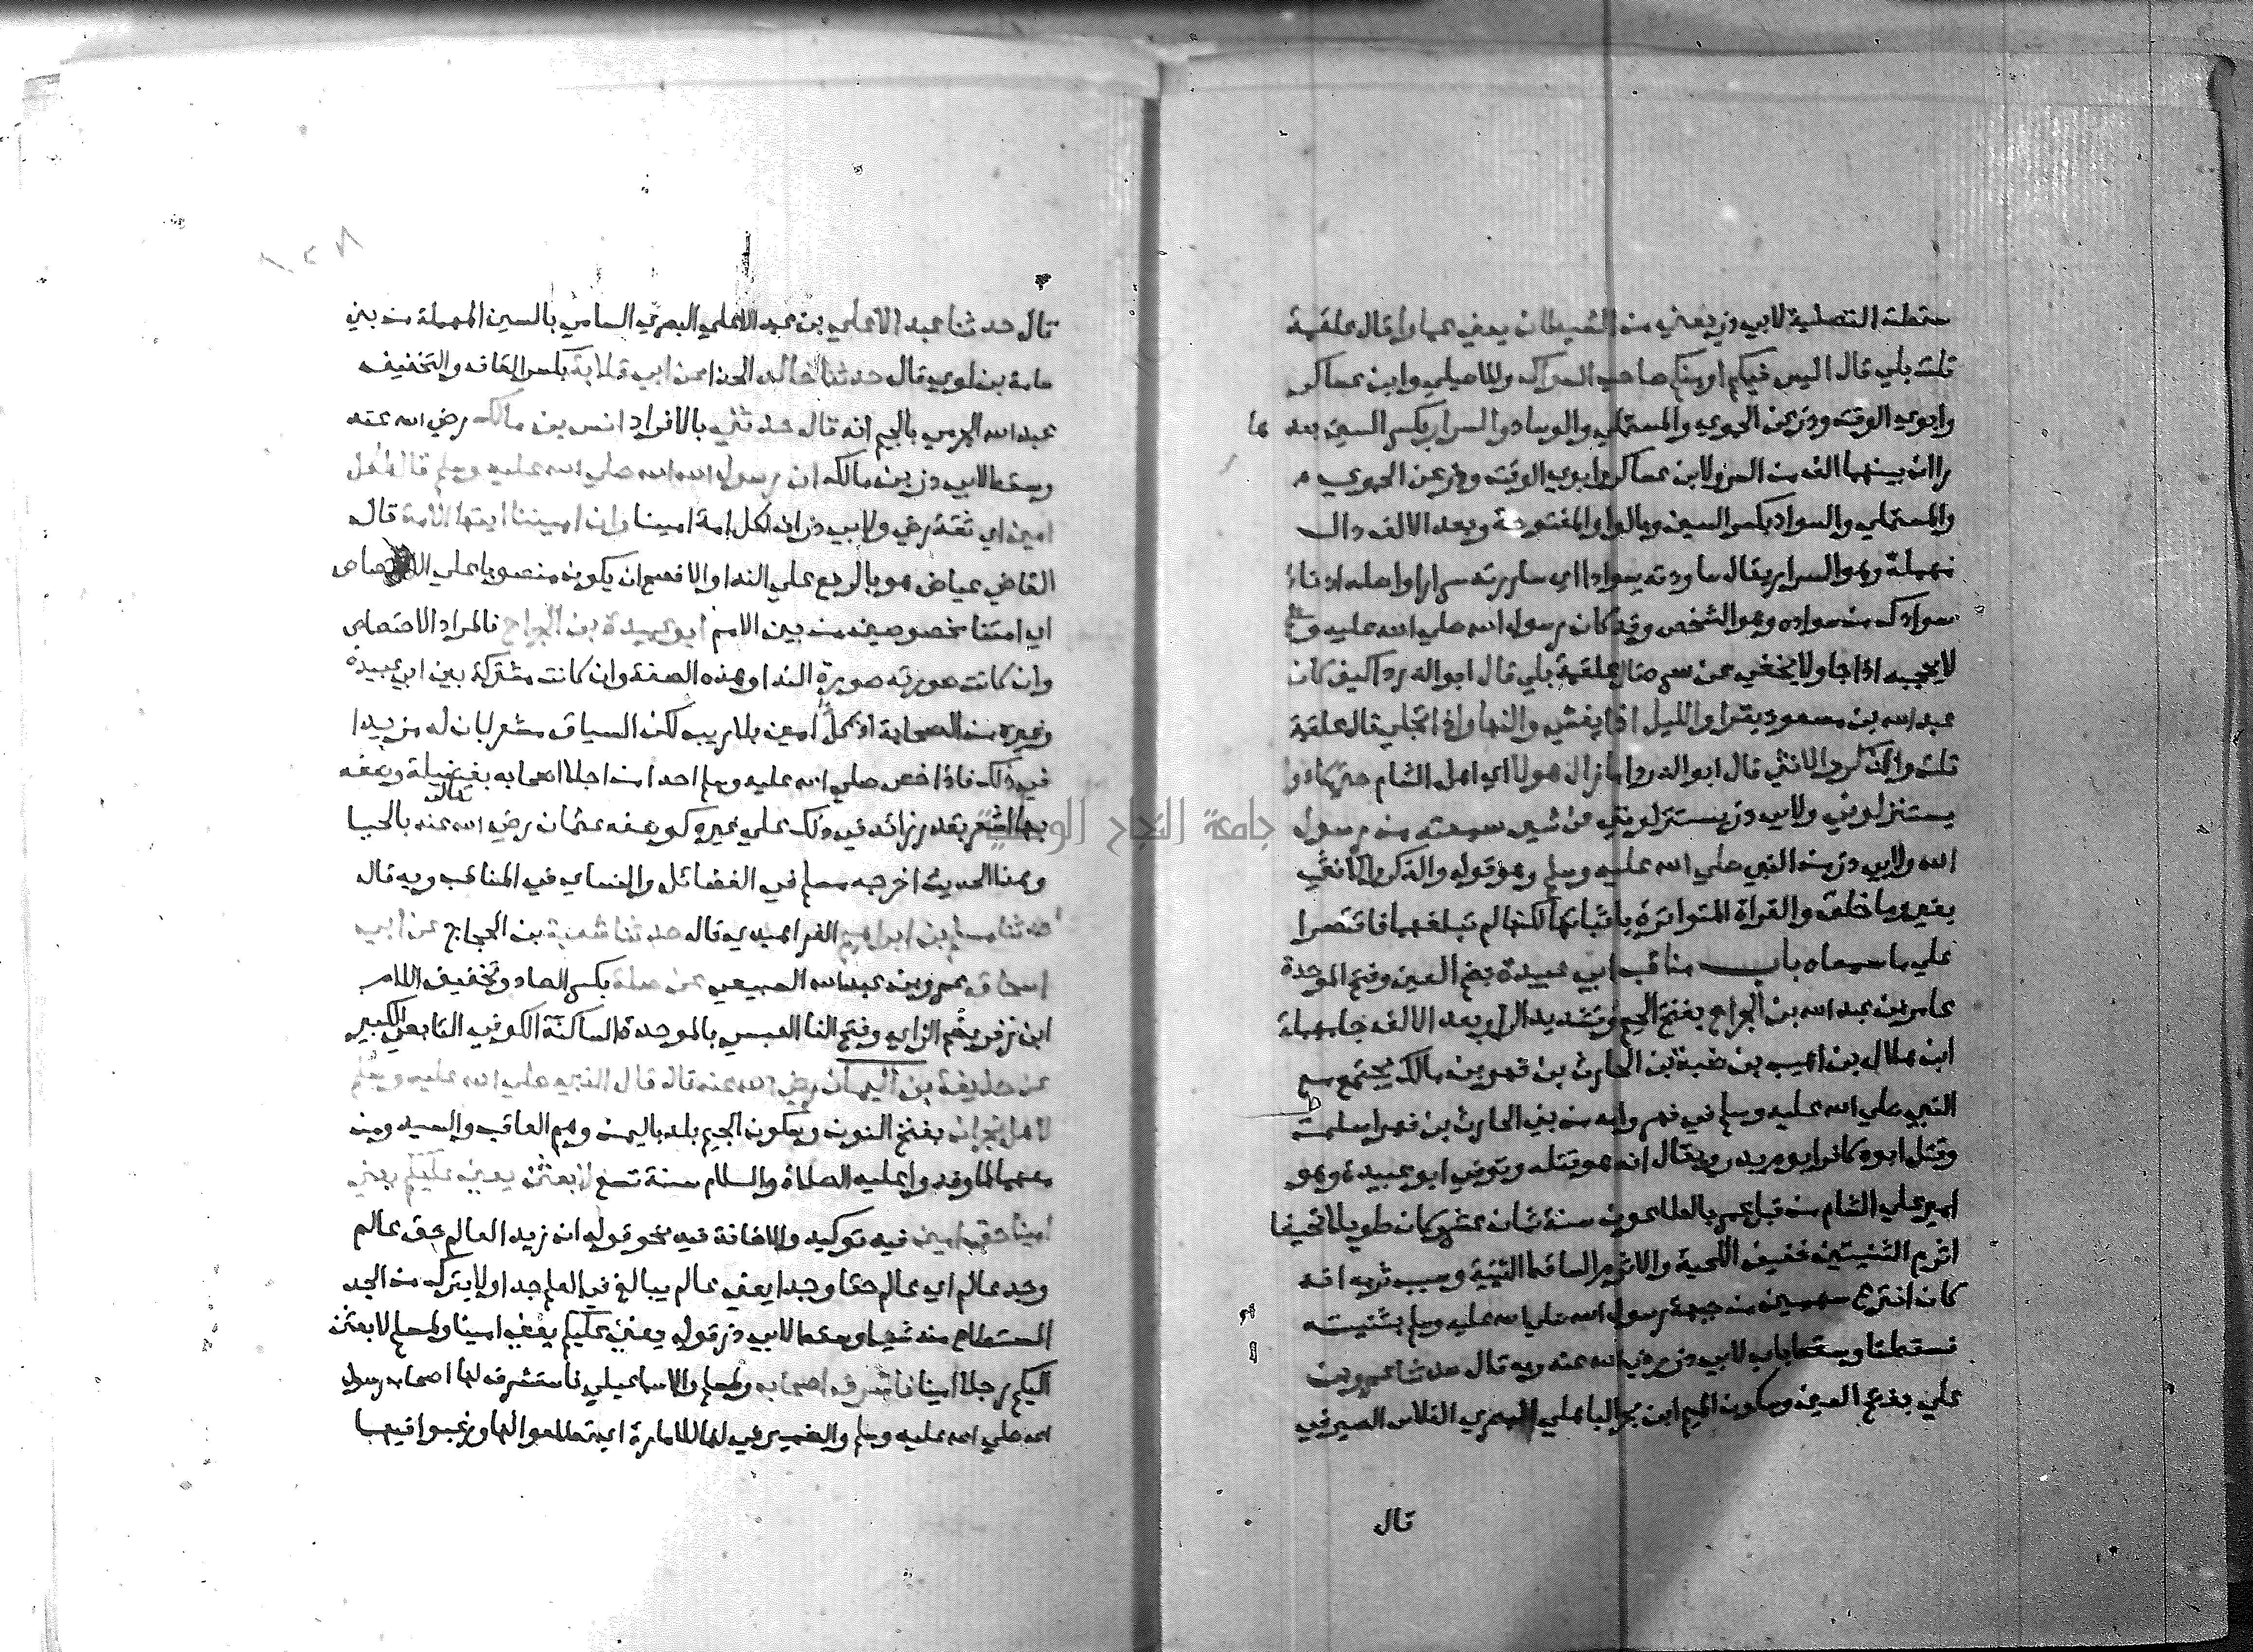 سقطت التصلية لابي ذر يعني من الشيطان يعني عمارا قال علقمة
قلت بلي قال اليس فيكم او منكم صاحب السواك وللاصيلي وابن عساكر
وابوي الوقت وذر عن الحموي والمستملي والوساد والسرار بكسر السين بعد ها
راان بينهما الف من السر ولابن عساكر وابوي الوقت وذر عن الحموي
والمستملي والسواد بكسر السين وبالواو المفتوحة وبعد الالف دال
مهملة وهو السرار يقال ساودته سوادا اي ساررته سرارا واصله ادناء
سوادك من سواده وهو الشخص وقد كان رسول الله صلي الله عليه وسلم
لا يحجبه اذا جا ولا يخفي عن سره قال علقمة بلي قال ابو الدردا كيف كان
عبد الله بن مسعود يقرا والليل اذا يغشي والنهار اذا تجلي قال علقمة
قلت والذكر والانثي قال ابو الدردا ما زال هولا اي اهل الشام حتي كادوا
يستنزلوني ولابي ذر يستنزلونني عن شي سمعته من رسول
الله ولابي ذر من النبي صلي الله عليه وسلم وهو قوله والذكر والانثي
بغير وما خلق والقراة المتواترة باثباتها لكنها لم تبلغهما فاقتصرا
علي ما سمعاه باب مناقب ابي عبيدة بضم العين وفتح الموحدة
عامر بن عبد الله بن الجراح بفتح الجيم وتشديد الرا وبعد الالف حا مهملة
ابن هلال بن اهيب بن ضبة بن الحارث بن فهر بن مالك يجتمع مع
النبي صلي الله عليه وسلم في فهر وامه من بني الحارث بن فهر اسلمت
وقتل ابوه كافرا يوم بدر ويقال انه هو قتله وتوفي ابو عبيدة وهو
امير علي الشام من قبل عمر بالطاعون سنة ثمان عشر وكان طويلا نحيفا
اثرم الثنيتين خفيف اللحية والاثرم الساقط الثنية وسبب ثرمه انه
كان انتزع سهمين من جبهة رسول الله صلي الله عليه وسلم بثنيته
فسقطتا وسقط باب لابي ذر رضي الله عنه وبه قال حدثنا عمرو بن
علي بفتح العين وسكون الميم ابن بحر الباهلي البصري الفلاس الصيرفي
قال
قال حدثنا عبد الاعلي بن عبد الاعلي البصري السامي بالسين المهملة من بني
سامة بن لوي قال حدثنا خالد الحذا عن ابي قلابة بكسر القاف والتخفيف
عبد الله الجرمي بالجيم انه قال حدثني بالافراد انس بن مالك رضي الله عنه
وسقط لابي ذر بن مالك ان رسول الله صلي الله عليه وسلم قال لكل
امين اي ثقة رضي ولابي ذر ان لكل امة امينا وان اميننا ايتها الامة قال
القاضي عياض هو بالرفع علي الندا والافصح ان يكون منصوبا علي الاختصاص
اي امتنا مخصوصين من بين الامم ابو عبيدة بن الجراح فالمراد الاختصاص
وان كانت صورته صورة الندا وهذه الصفة وان كانت مشتركة بين ابي عبيدة
وغيره من الصحابة اذ كل امين بلا ريب لكن السياق مشعر بان له مزيدا
في ذلك فاذا خص صلي الله عليه وسلم احدا من اجلا اصحابه بفضيلة وصفه
بها اشعر بقدر زائد في ذلك علي غيره كوصفه عثمان رضي الله عنه بالحيا
وهذا الحديث اخرجه مسلم في الفضائل والنساي في المناقب وبه قال
حدثنا مسلم بن ابراهيم الفراهيدي قال حدثنا شعبة بن الحجاج عن ابي
اسحاق عمرو بن عبد الله السبيعي عن صلة بكسر الصاد وتخفيف اللام
ابن زفر بضم الزاي وفتح الفا العبسي بالموحدة الساكنة الكوفي التابعي الكبير
عن حذيفة بن اليمان رضي الله عنه قال قال النبي صلي الله عليه وسلم
لاهل نجران بفتح النون وسكون الجيم بلد باليمن وهم العاقب والسيد ومن
معهما لما وفدوا عليه الصلاة والسلام سنة تسع لابعثن يعني عليكم يعني
امينا حق امين فيه توكيد والاضافة فيه نحو قوله ان زيد العالم حق عالم
وجد عالم اي عالم حقا وجدا يعني عالم يبالغ في العلم جدا ولا يترك من الجد
المستطاع منه شيا وسقط لابي ذر قوله يعني عليكم يعني امينا ولمسلم لابعثن
اليكم رجلا امينا فاشرف اصحابه ولمسلم والاسماعيلي فاستشرف لها اصحاب رسول
الله صلي الله عليه وسلم والضمير في لها للامارة اي تطلعوا لها ورغبوا فيها
جامعة النجاح الوطنية